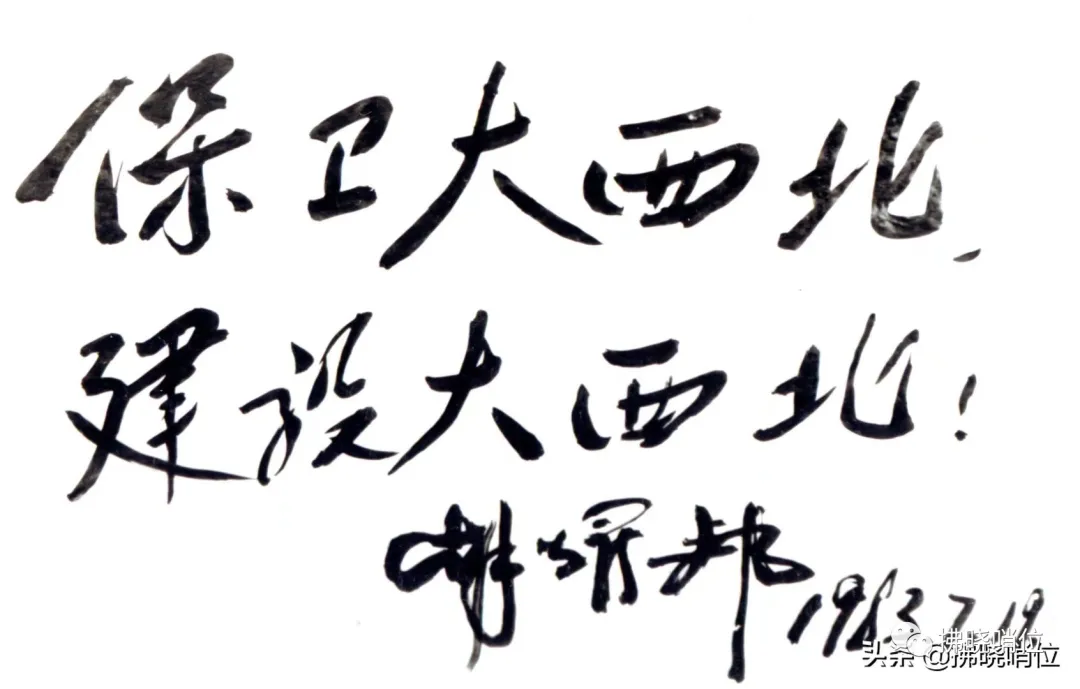 保卫大西北、
建设大西北！
胡耀邦 1983.7.19
拂晓哨位
头条 @拂晓哨位